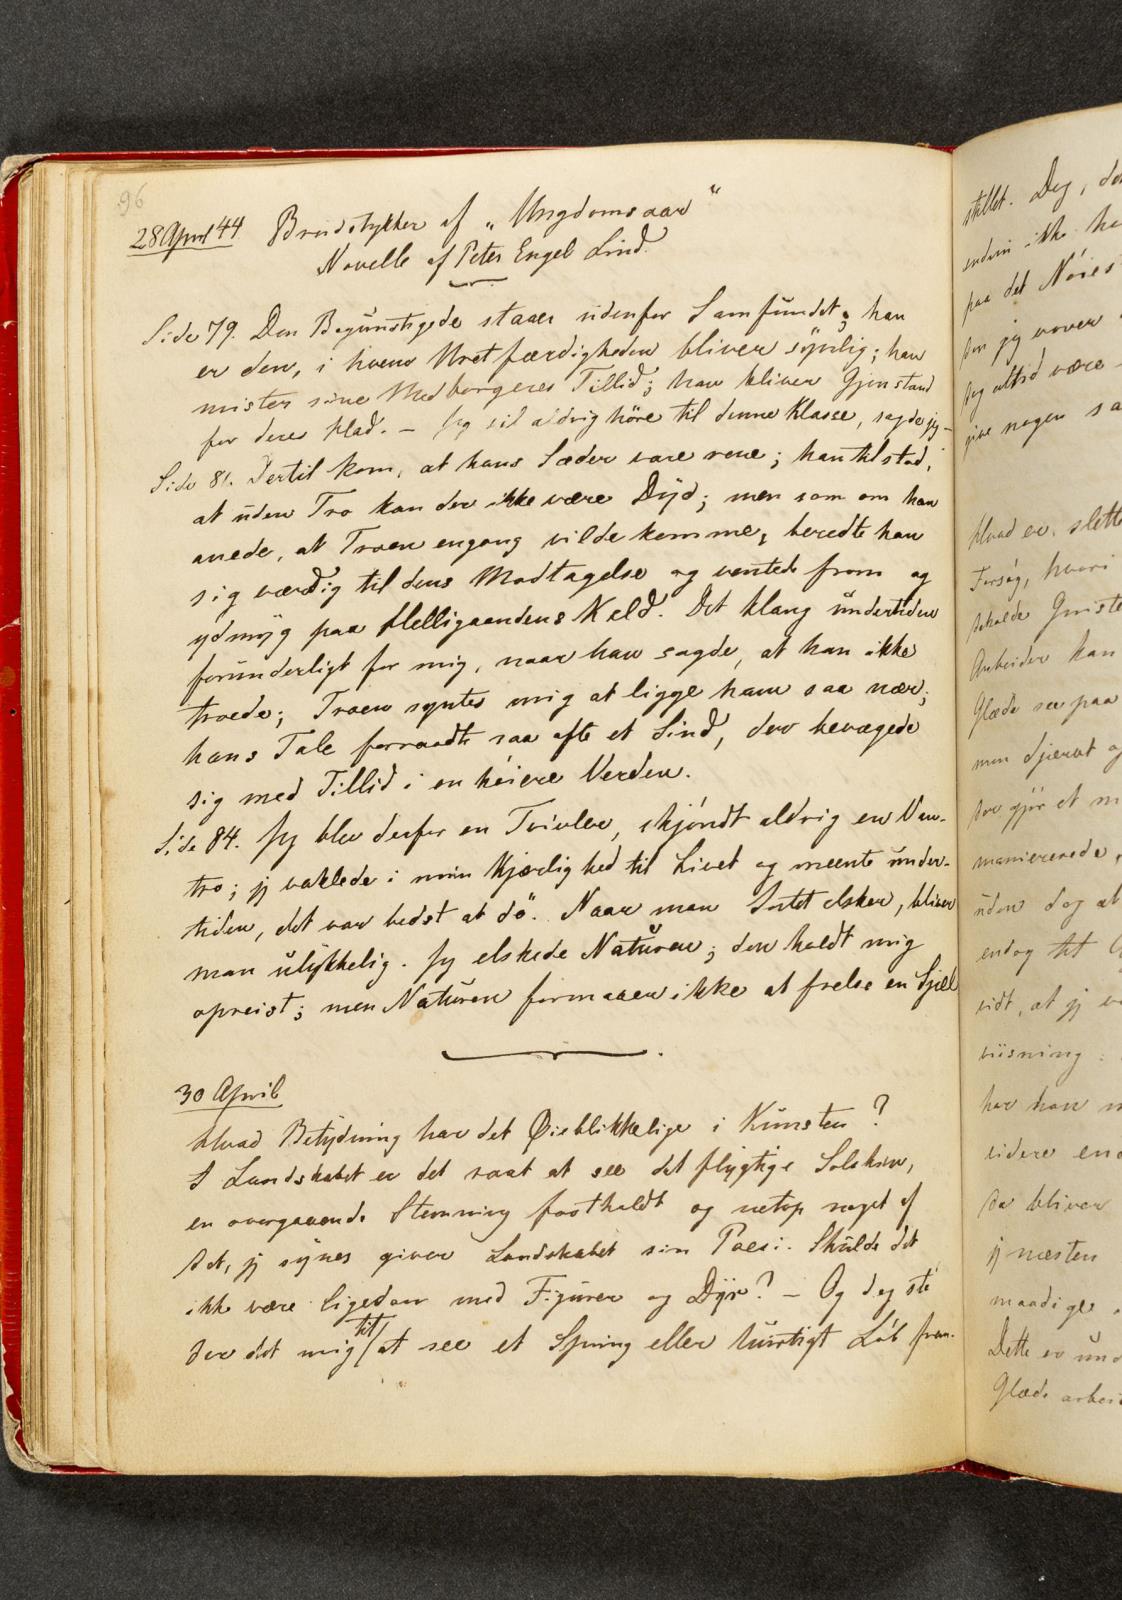 96
28 April 44. Brudstykker af „Ungdomsaar"
Novelle af Peter Engel Lind.
Side 79. Den Begunstigede staaer udenfor Samfundet; han
er den, i hvem Uretfærdigheden bliver synlig; han
mister sine Medborgeres Tillid; han bliver Gjenstand
for deres Had. – Jeg vil aldrig høre til denne Klasse, sagde jeg –
Side 81. Dertil kom, at hans Sæder vare rene; han tilstod,
at uden Tro kan der ikke være Dyd; men som om han
anede, at Troen engang vilde komme, beredte han
sig værdig til dens Modtagelse og ventede from og
ydmyg paa Helligaandens Kald. Det klang undertiden
forunderligt for mig, naar han sagde, at han ikke
troede; Troen syntes mig at ligge ham saa nær;
hans Tale forraadte saa ofte et Sind, der bevægede
sig med Tillid i en høiere Verden.
Side 84. Jeg blev derfor en Tvivler, skjøndt aldrig en Van-
tro; jeg vaklede i min Kjærlighed til Livet og meente under-
tiden, det var bedst at dø. Naar man Intet elsker, bliver
man ulykkelig. Jeg elskede Naturen; den holdt mig
opreist; men Naturen formaaer ikke at frelse en Sjæl
30 April
Hvad Betydning har det Øieblikkelige i Kunsten?
I Landskabet er det rart at see det flygtige Solskin,
en overgaaende Stemning fastholdt og netop noget af
det, jeg synes giver Landskabet sin Poesi. Skulde det
ikke være ligedan med Figurer og Dyr? – Og dog stø
der det mig tit at see et Spring eller hurtigt Løb frem-
stillet. Dog, de
endnu ikke ha
paa det Nøies
den jeg vover
jeg altid være
give nogen sa
Hvad er, slette
Forsøg, hvori
Arbeider kan
Glæde see paa
men djærvt og
der gjør et m
maniererede,
uden dog at
endog tit
vidt, at jeg
viisning
har han
videre end
da bliver
jeg næsten
maadige
Dette er und
Glæde arbei